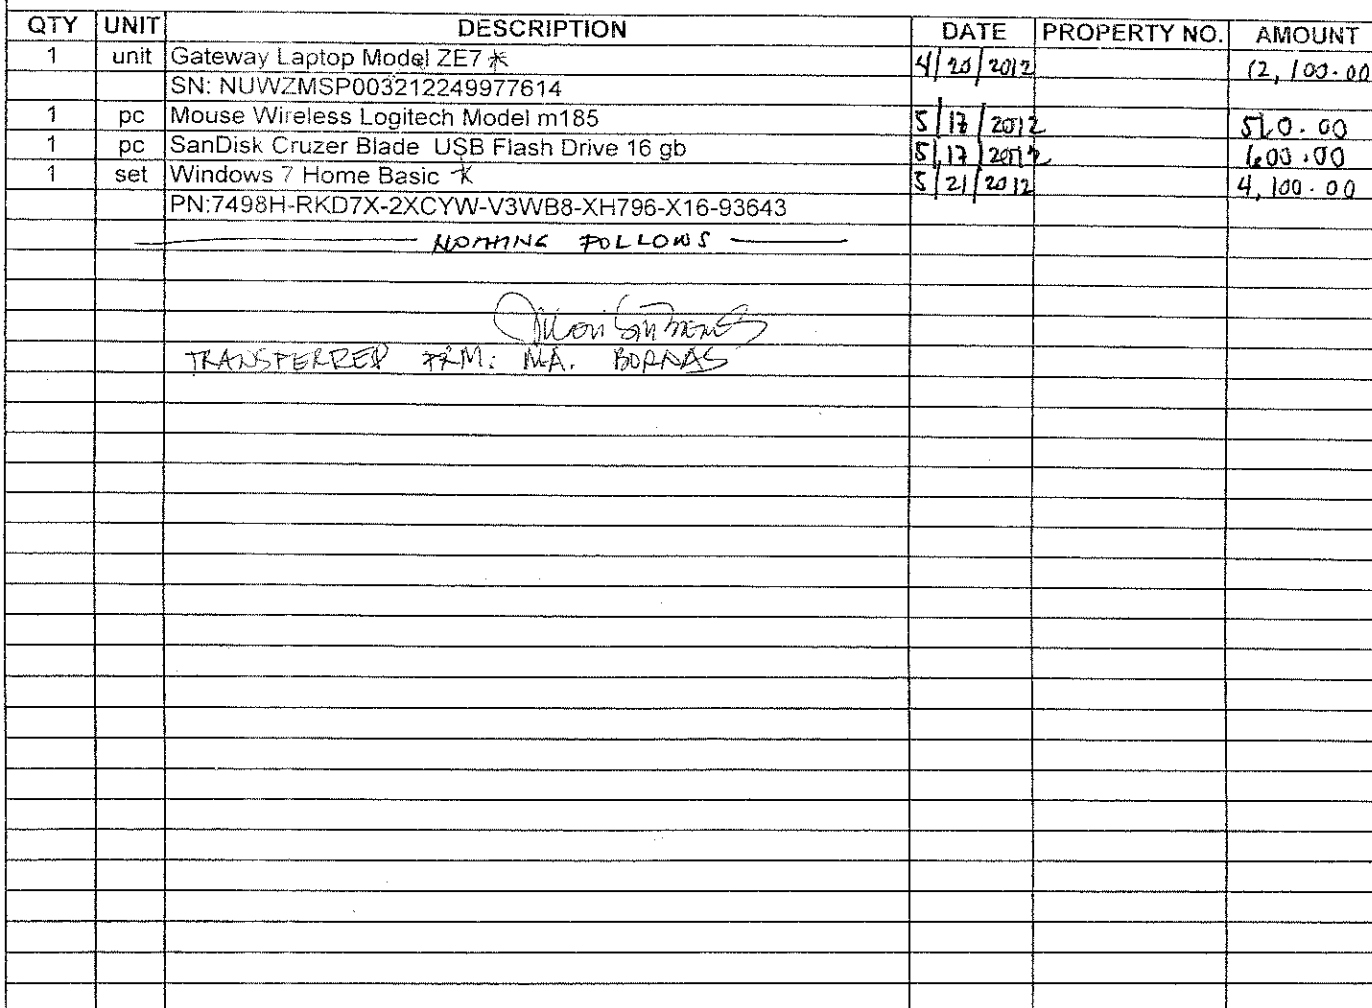 QTY UNIT DESCRIPTION DATE PROPERTY NO. AMOUNT
1 unit Gateway Laptop Model ZE7 * 4/20/2012 12,100.00
SN: NUWZMSP003212249977614
1 pc Mouse Wireless Logitech Model m185 5/17/2012
1 pc SanDisk Cruzer Blade USB Flash Drive 16 gb 5/17/2012 600.00
1 set Windows 7 Home Basic * 5/21/2012 4,100.00
PN:7498H-RKD7X-2XCYW-V3WB8-XH796-X16-93643
NOTHING FOLLOWS
TRANSFERRED FRM: MA. BORNAS